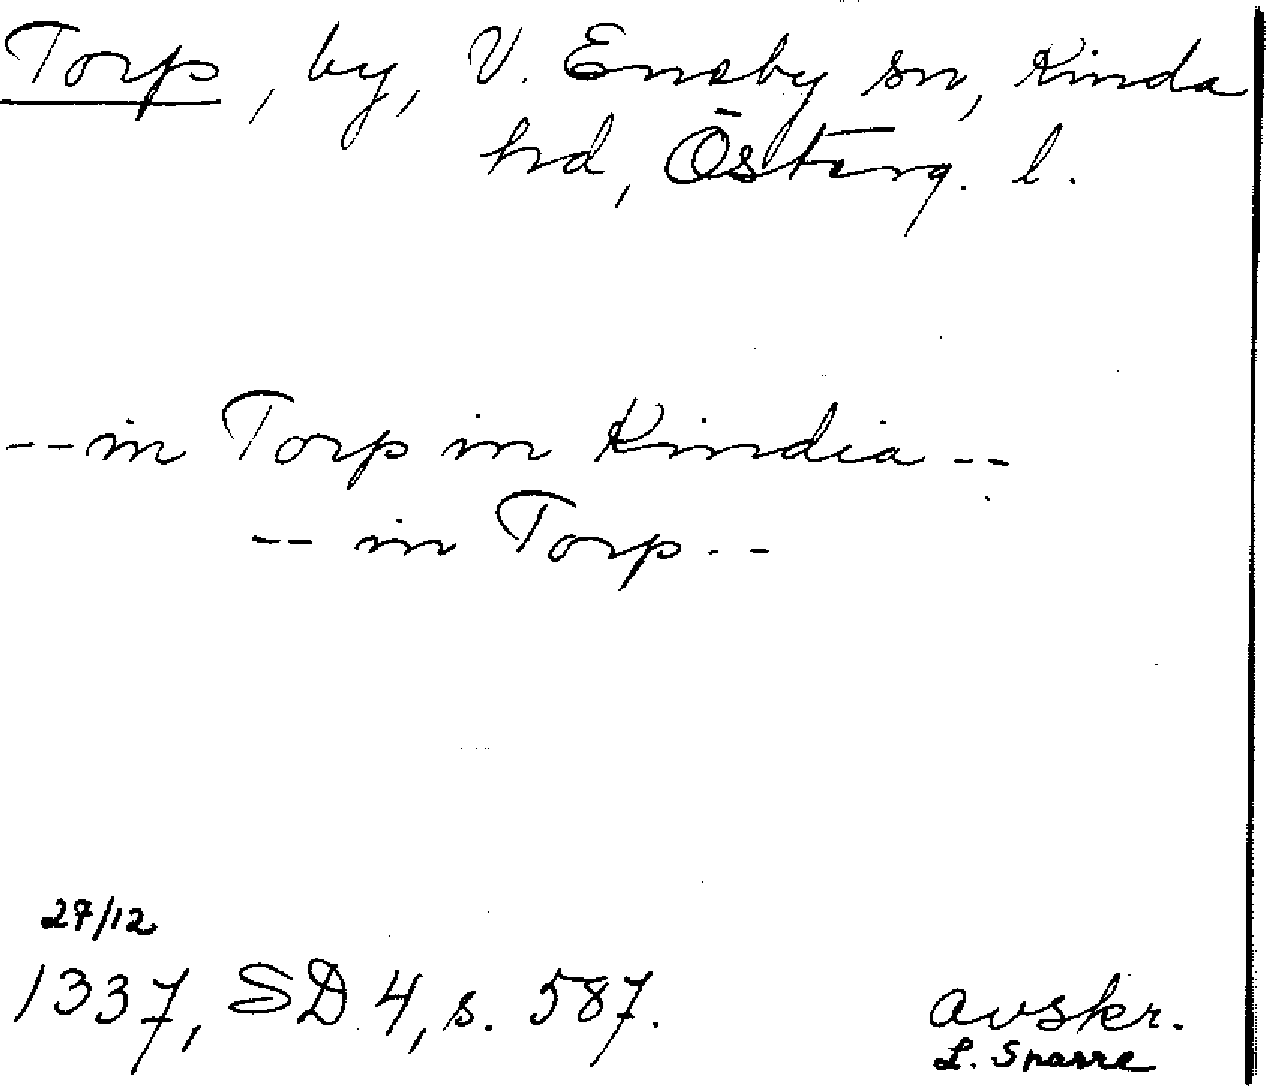 Torp, by, V. Eneby sn, Kinda
hd, Österg. l.
--in Torp in Kindia--
-- in Torp--
27/12
1337, SD 4, s. 587.
avskr.
L. Sparre